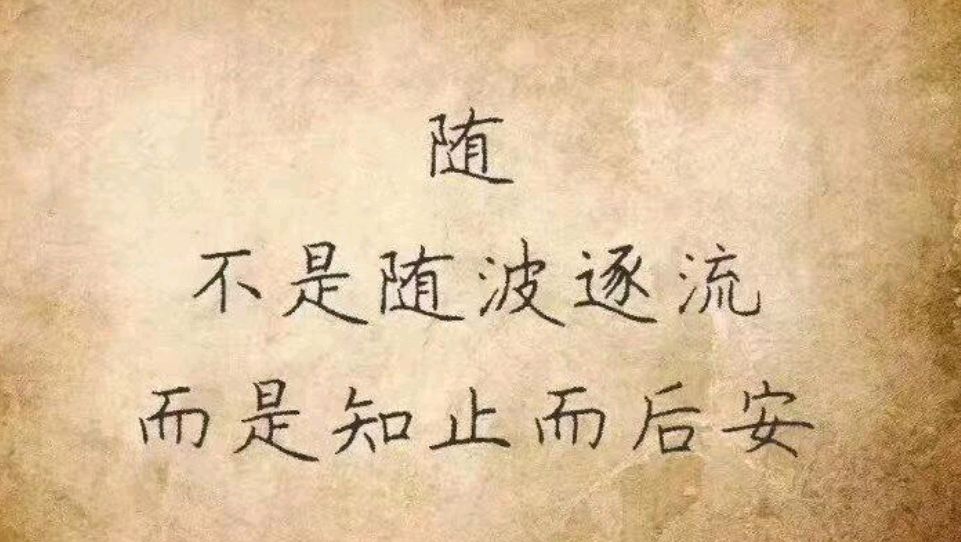 随
不是随波逐流
而是知止而后安